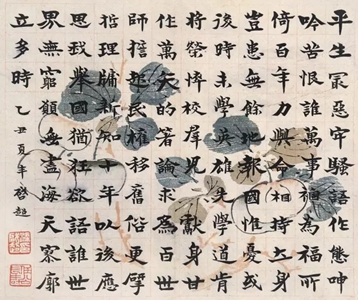 平生冣惡牢騷語作態呻
吟苦恨誰萬事禍為福所
倚百年力與命相持立身
豈患無餘地報國惟憂或
後時未學英雄先學道肯
將榮悴校羣兒獻身甘
作萬矢的著論求為百世
師誓起民權移舊俗更擎
哲理牖新知十年以後應
思我舉國猶狂欲語誰世
界無窮願無盡海天寥廓
立多時 乙丑夏 啓超